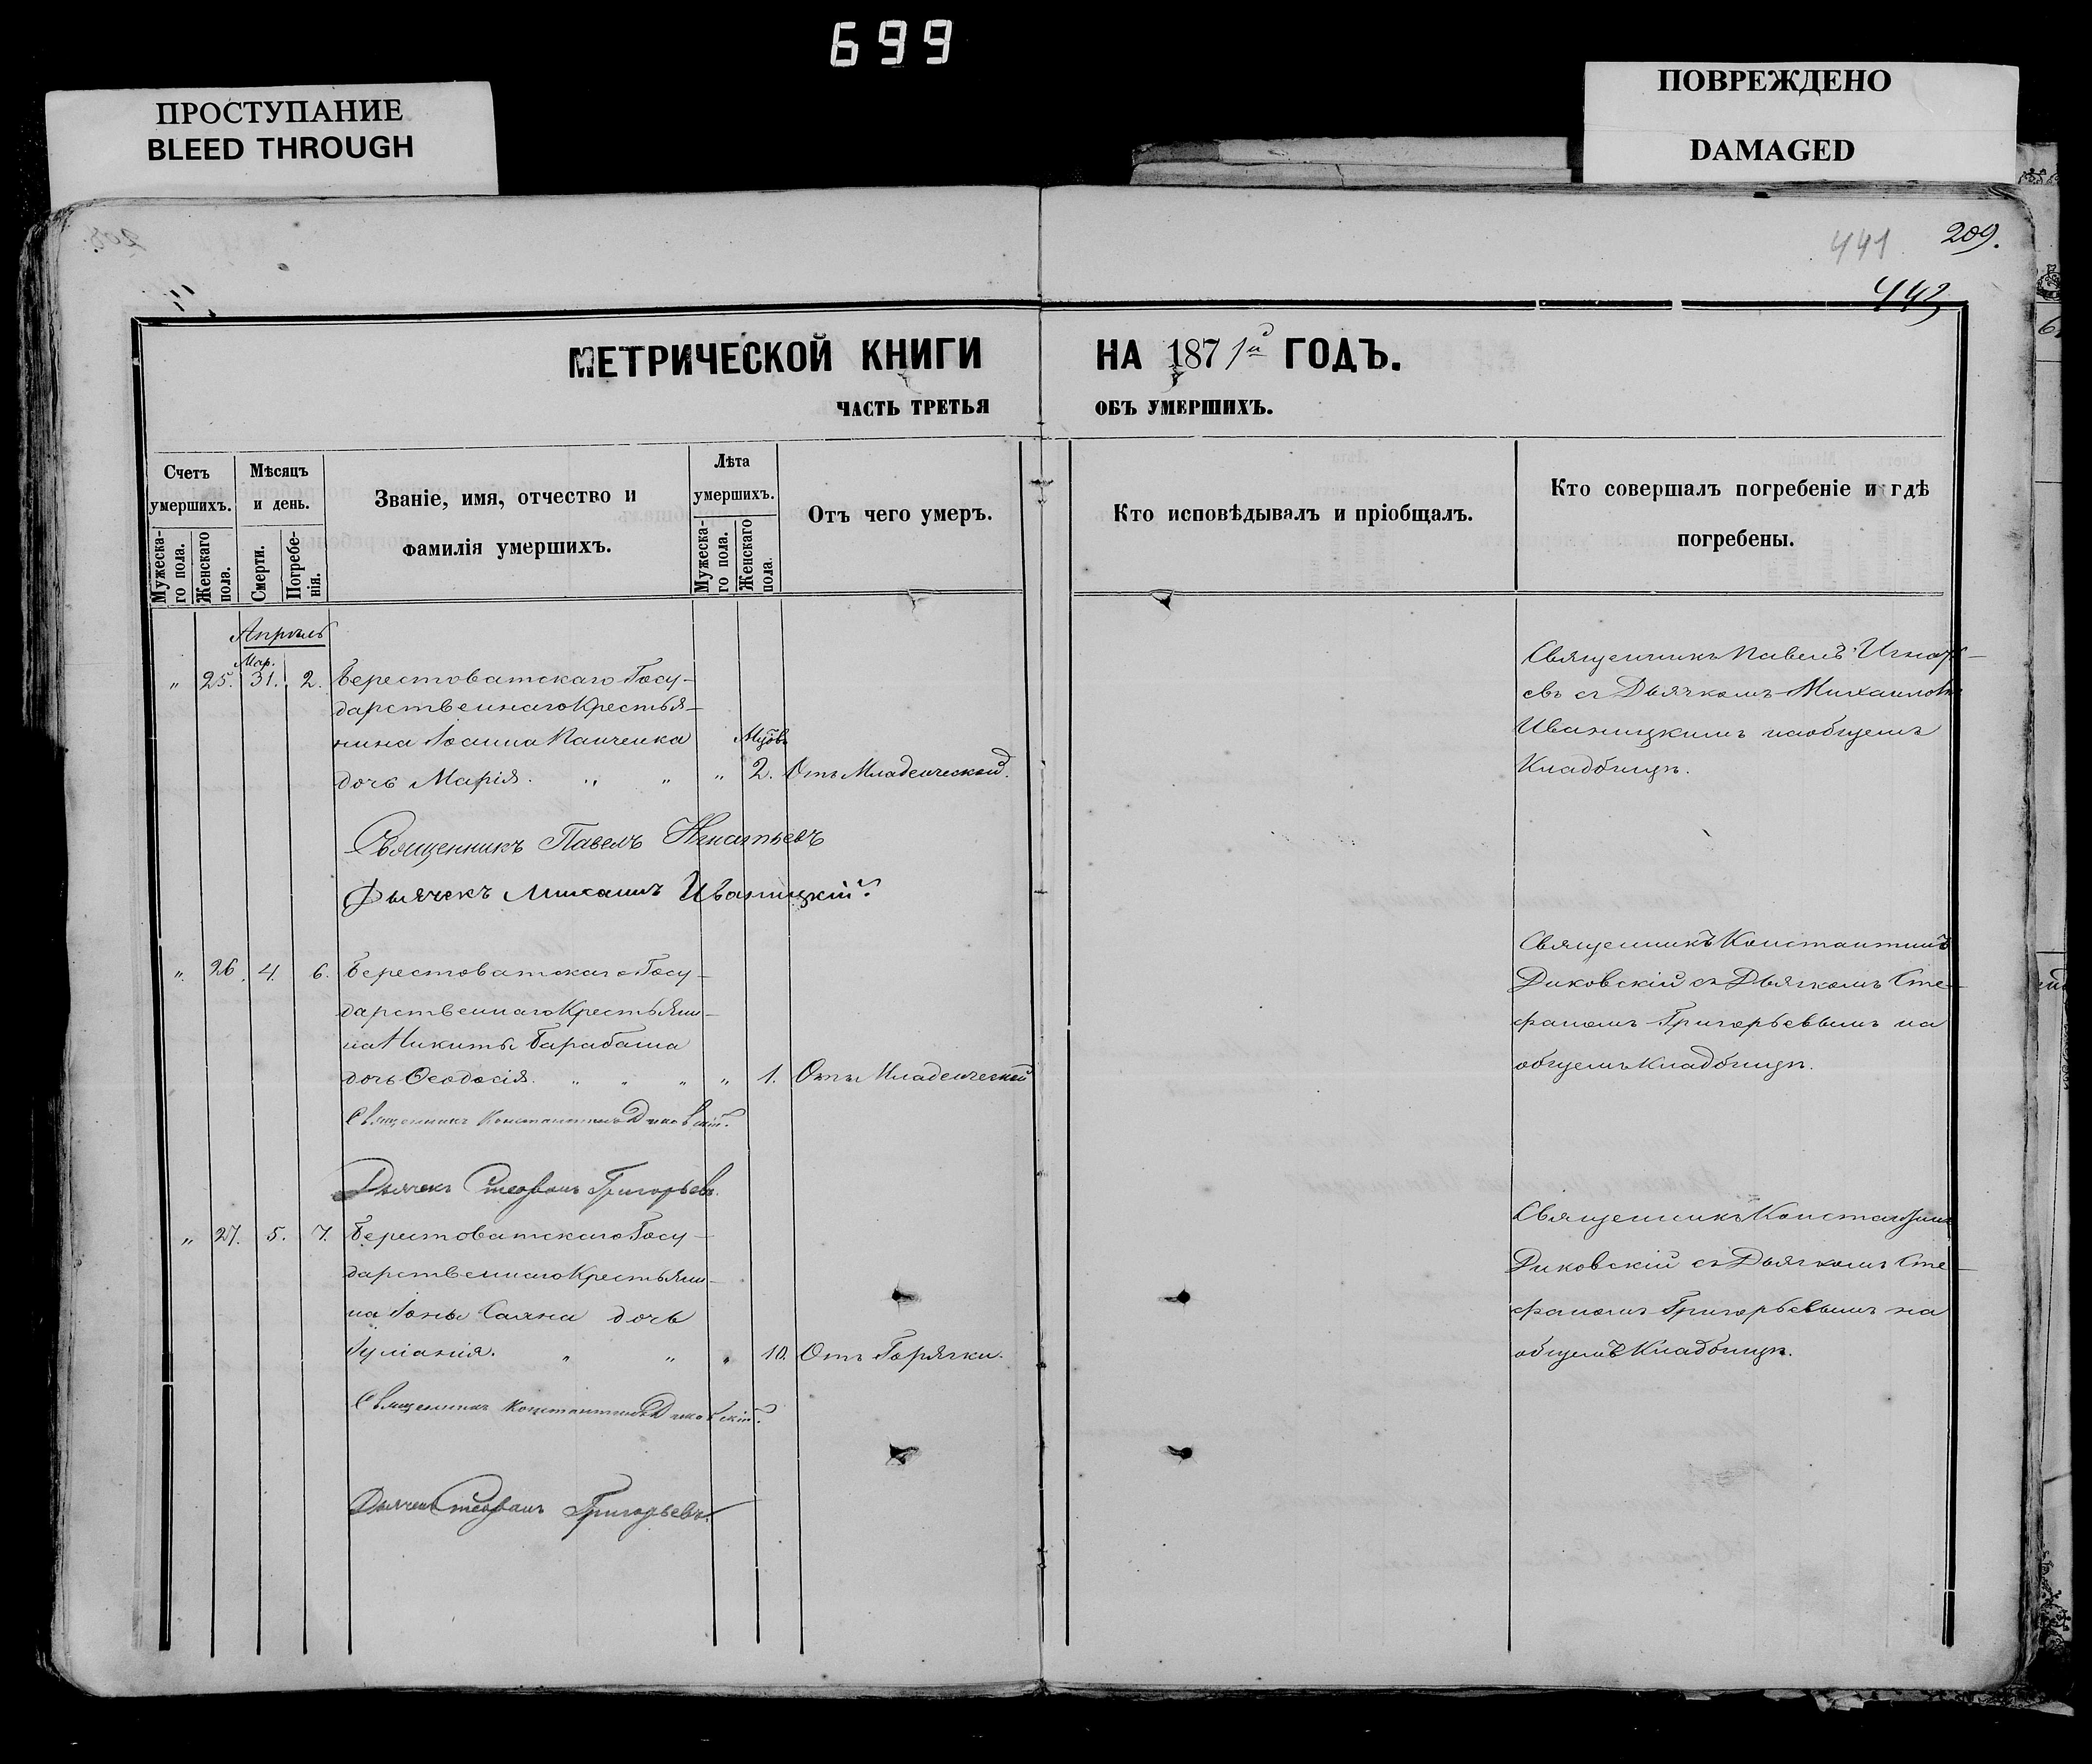 699
ПРОСТУПАНИЕ
BLEED THROUGH
ПОВРЕЖДЕНО
DAMAGED
441 209.
443
МЕТРИЧЕСКОЙ КНИГИ НА 1871й ГОДЪ.
ЧАСТЬ ТРЕТЬЯ ОБЪ УМЕРШИХЪ.
Счетъ умершихъ.
Мужеска-го пола.
Женскаго пола.
Мѣсяцъ и день.
Смерти.
Погребе-нія.
Званіе, имя, отчество и
фамилія умершихъ.
Лѣта умершихъ.
Мужеска-го пола.
Женскаго пола.
Отъ чего умеръ.
Кто исповѣдывалъ и пріобщалъ.
Кто совершалъ погребеніе и гдѣ
погребены.
Апрѣль
Мар.
" 25. 31. 2. Берестоватскаго Госу-
дарственнаго Крестья-
нина Іоанна Панченка
дочь Марія. " " " 2. Отъ Младенческой.
Священникъ Павелъ Игнатьевъ
Дьячекъ Михаилъ Иваницкій.
Священникъ Павелъ Игнать-
евъ съ Дьячкомъ Михаиломъ
Иваницкимъ на общемъ
Кладбищѣ.
" 26. 4. 6. Берестоватскаго Госу-
дарственнаго Крестьяни-
на Никиты Барабаша
дочь Ѳеодосія. " " " " 1. Отъ Младенческой
Священникъ Константинъ Диковскій.
Дьячекъ Стефанъ Григорьевъ.
Священникъ Константинъ
Диковскій съ Дьячкомъ Сте-
фаномъ Григорьевымъ на
общемъ Кладбищѣ.
" 27. 5. 7. Берестоватскаго Госу-
дарственнаго Крестьяни-
на Іоны Саяна дочь
Іуліанія. " " " 10. Отъ Горячки.
Священникъ Константинъ Диковскій.
Дьячекъ Стефанъ Григорьевъ.
Священникъ Константинъ
Диковскій съ Дьячкомъ Сте-
фаномъ Григорьевымъ на
общемъ Кладбищѣ.